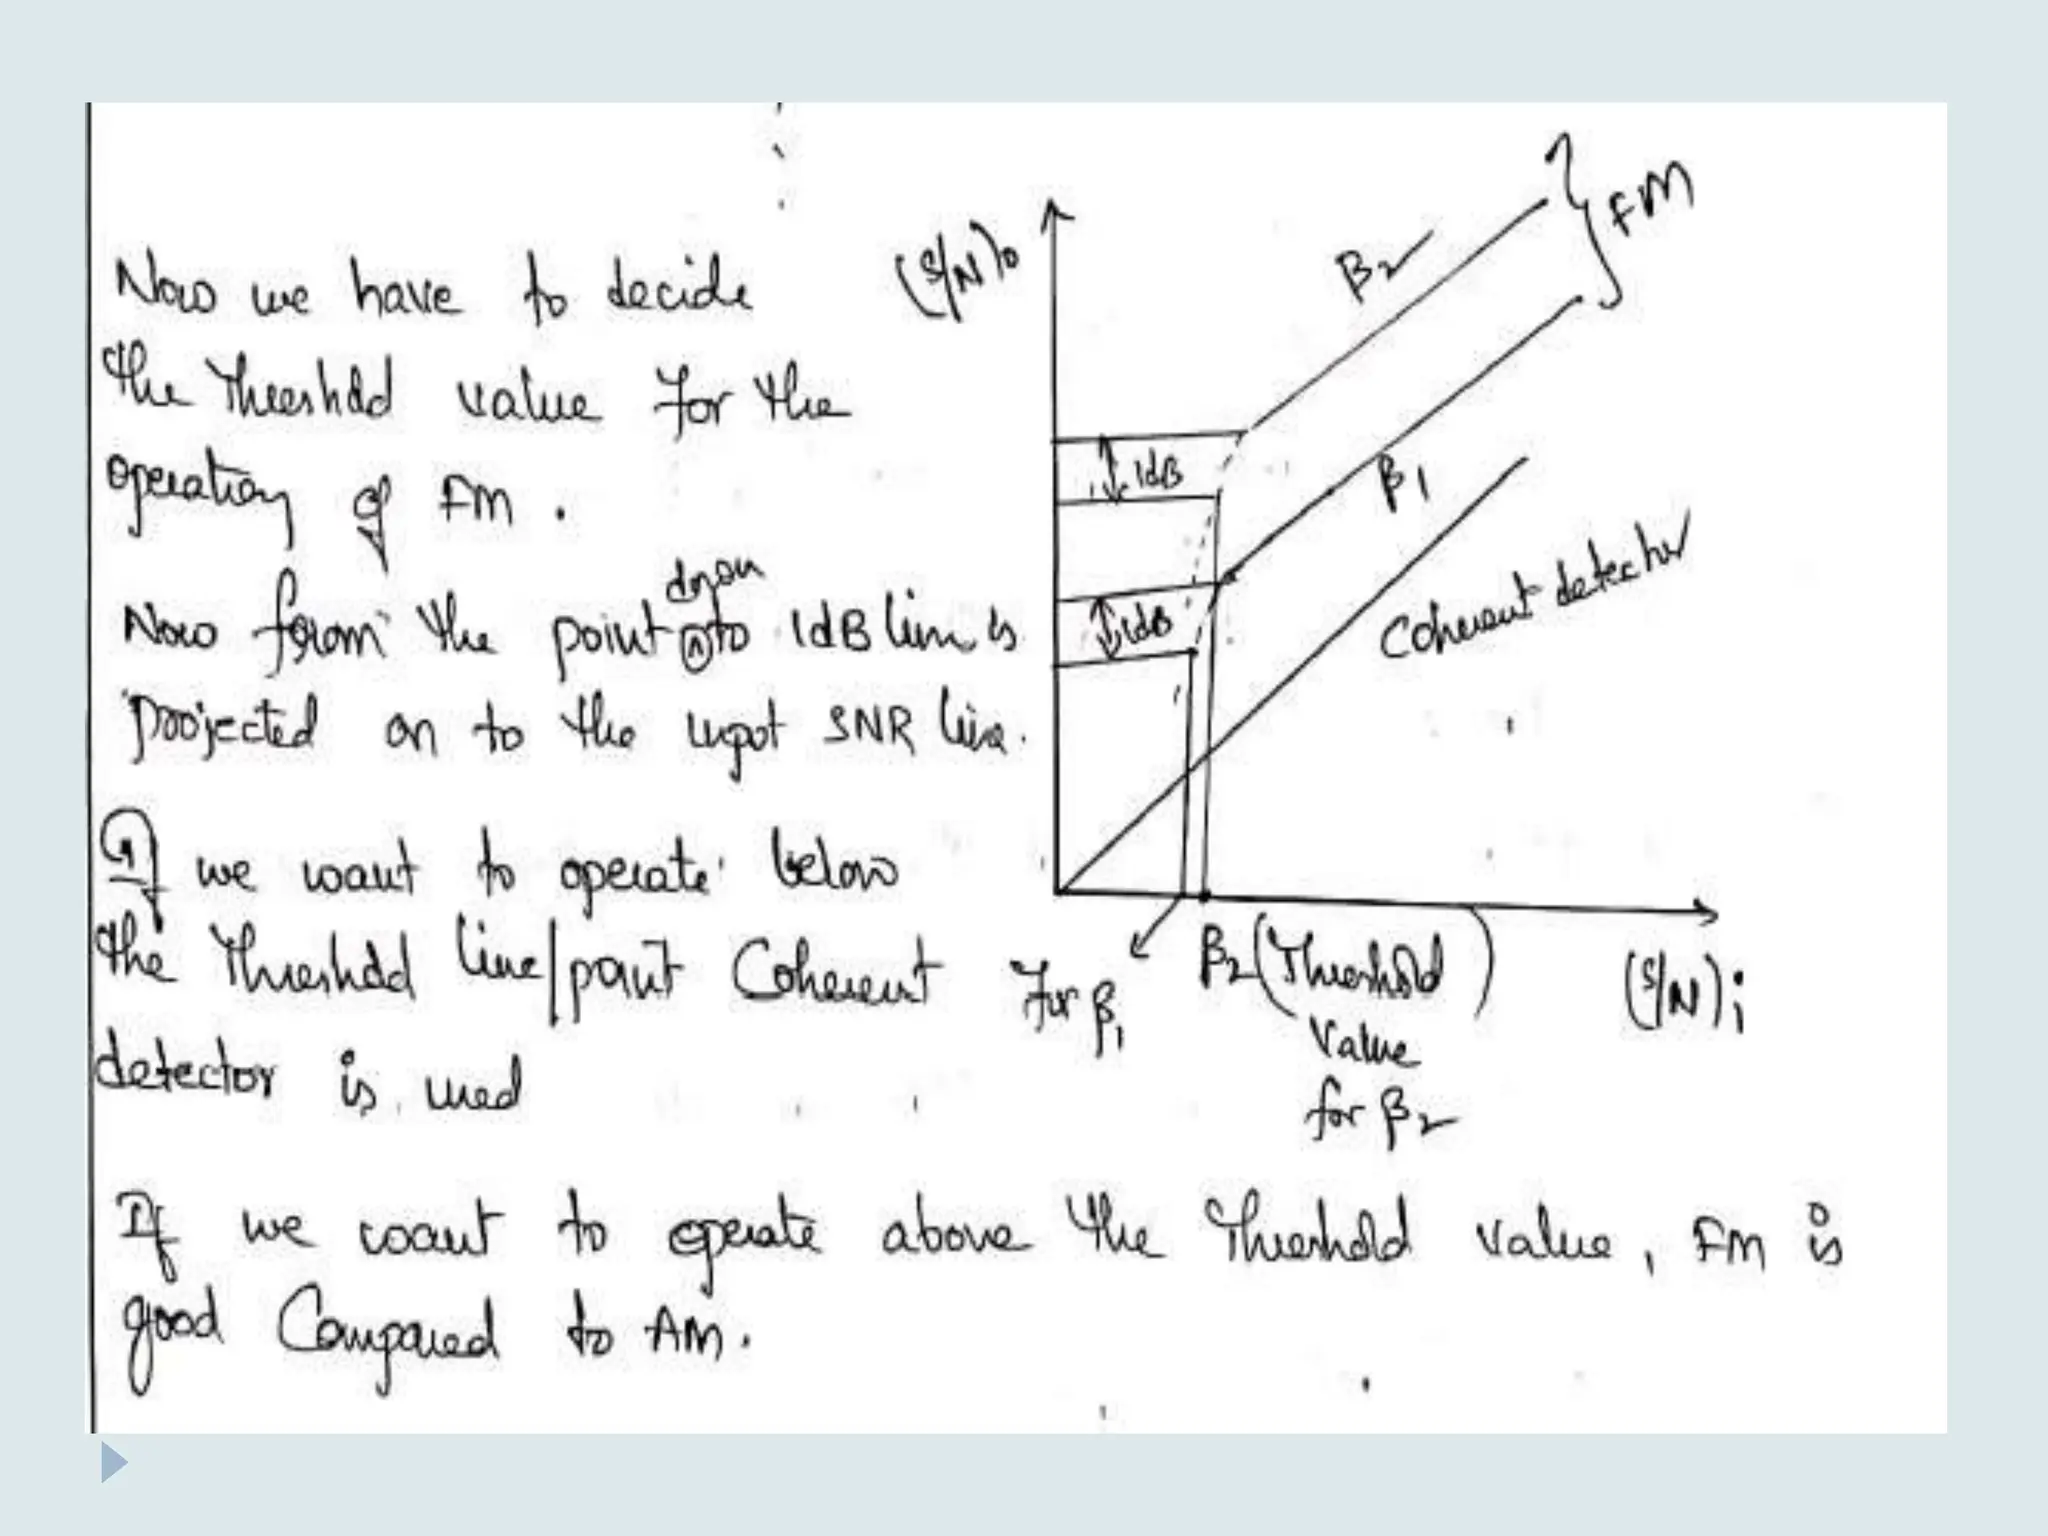 Now we have to decide
the Threshold value for the
operation of FM.
down
Now from the point (A) to 1dB line is
projected on to the input SNR line.
If we want to operate below
the Threshold line/point Coherent
detector is used
If we want to operate above the Threshold value, FM is
good Compared to AM.
(S/N)o
β2
FM
1dB
β1
1dB
Coherent detector
For β1
β2 (Threshold)
value
for β2
(S/N)i